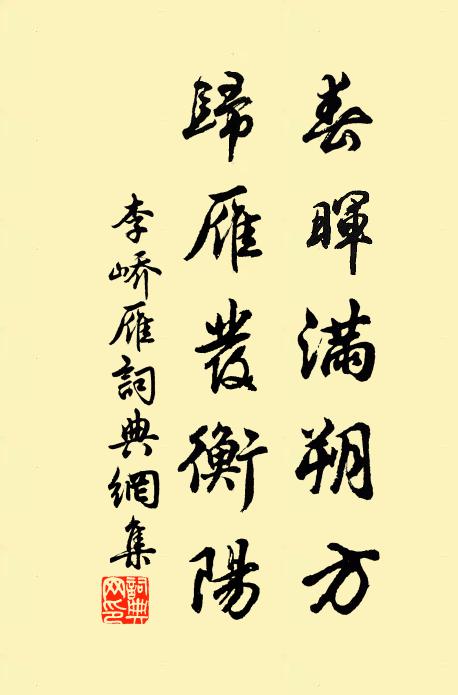 春暉滿朔方
歸雁發衡陽
李嶠雁詞典網集
詞典
网印